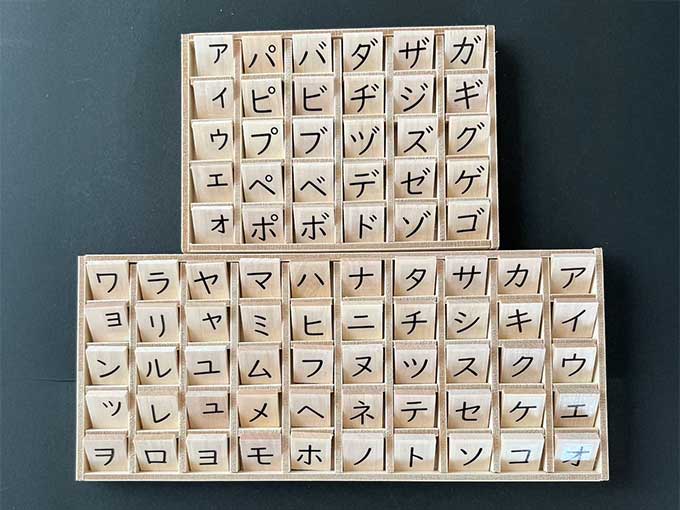 ァ パ バ ダ ザ ガ
ィ ピ ビ ヂ ジ ギ
ゥ プ ブ ヅ ズ グ
ェ ペ ベ デ ゼ ゲ
ォ ポ ボ ド ゾ ゴ
ワ ラ ヤ マ ハ ナ タ サ カ ア
ョ リ ャ ミ ヒ ニ チ シ キ イ
ン ル ユ ム フ ヌ ツ ス ク ウ
ッ レ ュ メ ヘ ネ テ セ ケ エ
ヲ ロ ヨ モ ホ ノ ト ソ コ オ